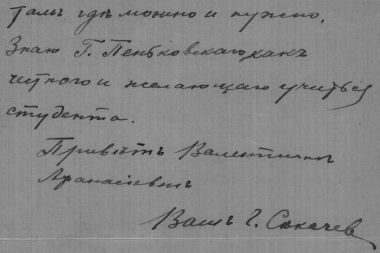 тамъ гдѣ можно и нужно.
Знаю Г. Пеньковскаго, какъ
честнаго и желающаго учиться
студента.
Привѣтъ Валентинѣ
Афанасіевнѣ
Вашъ Г. Сукачев